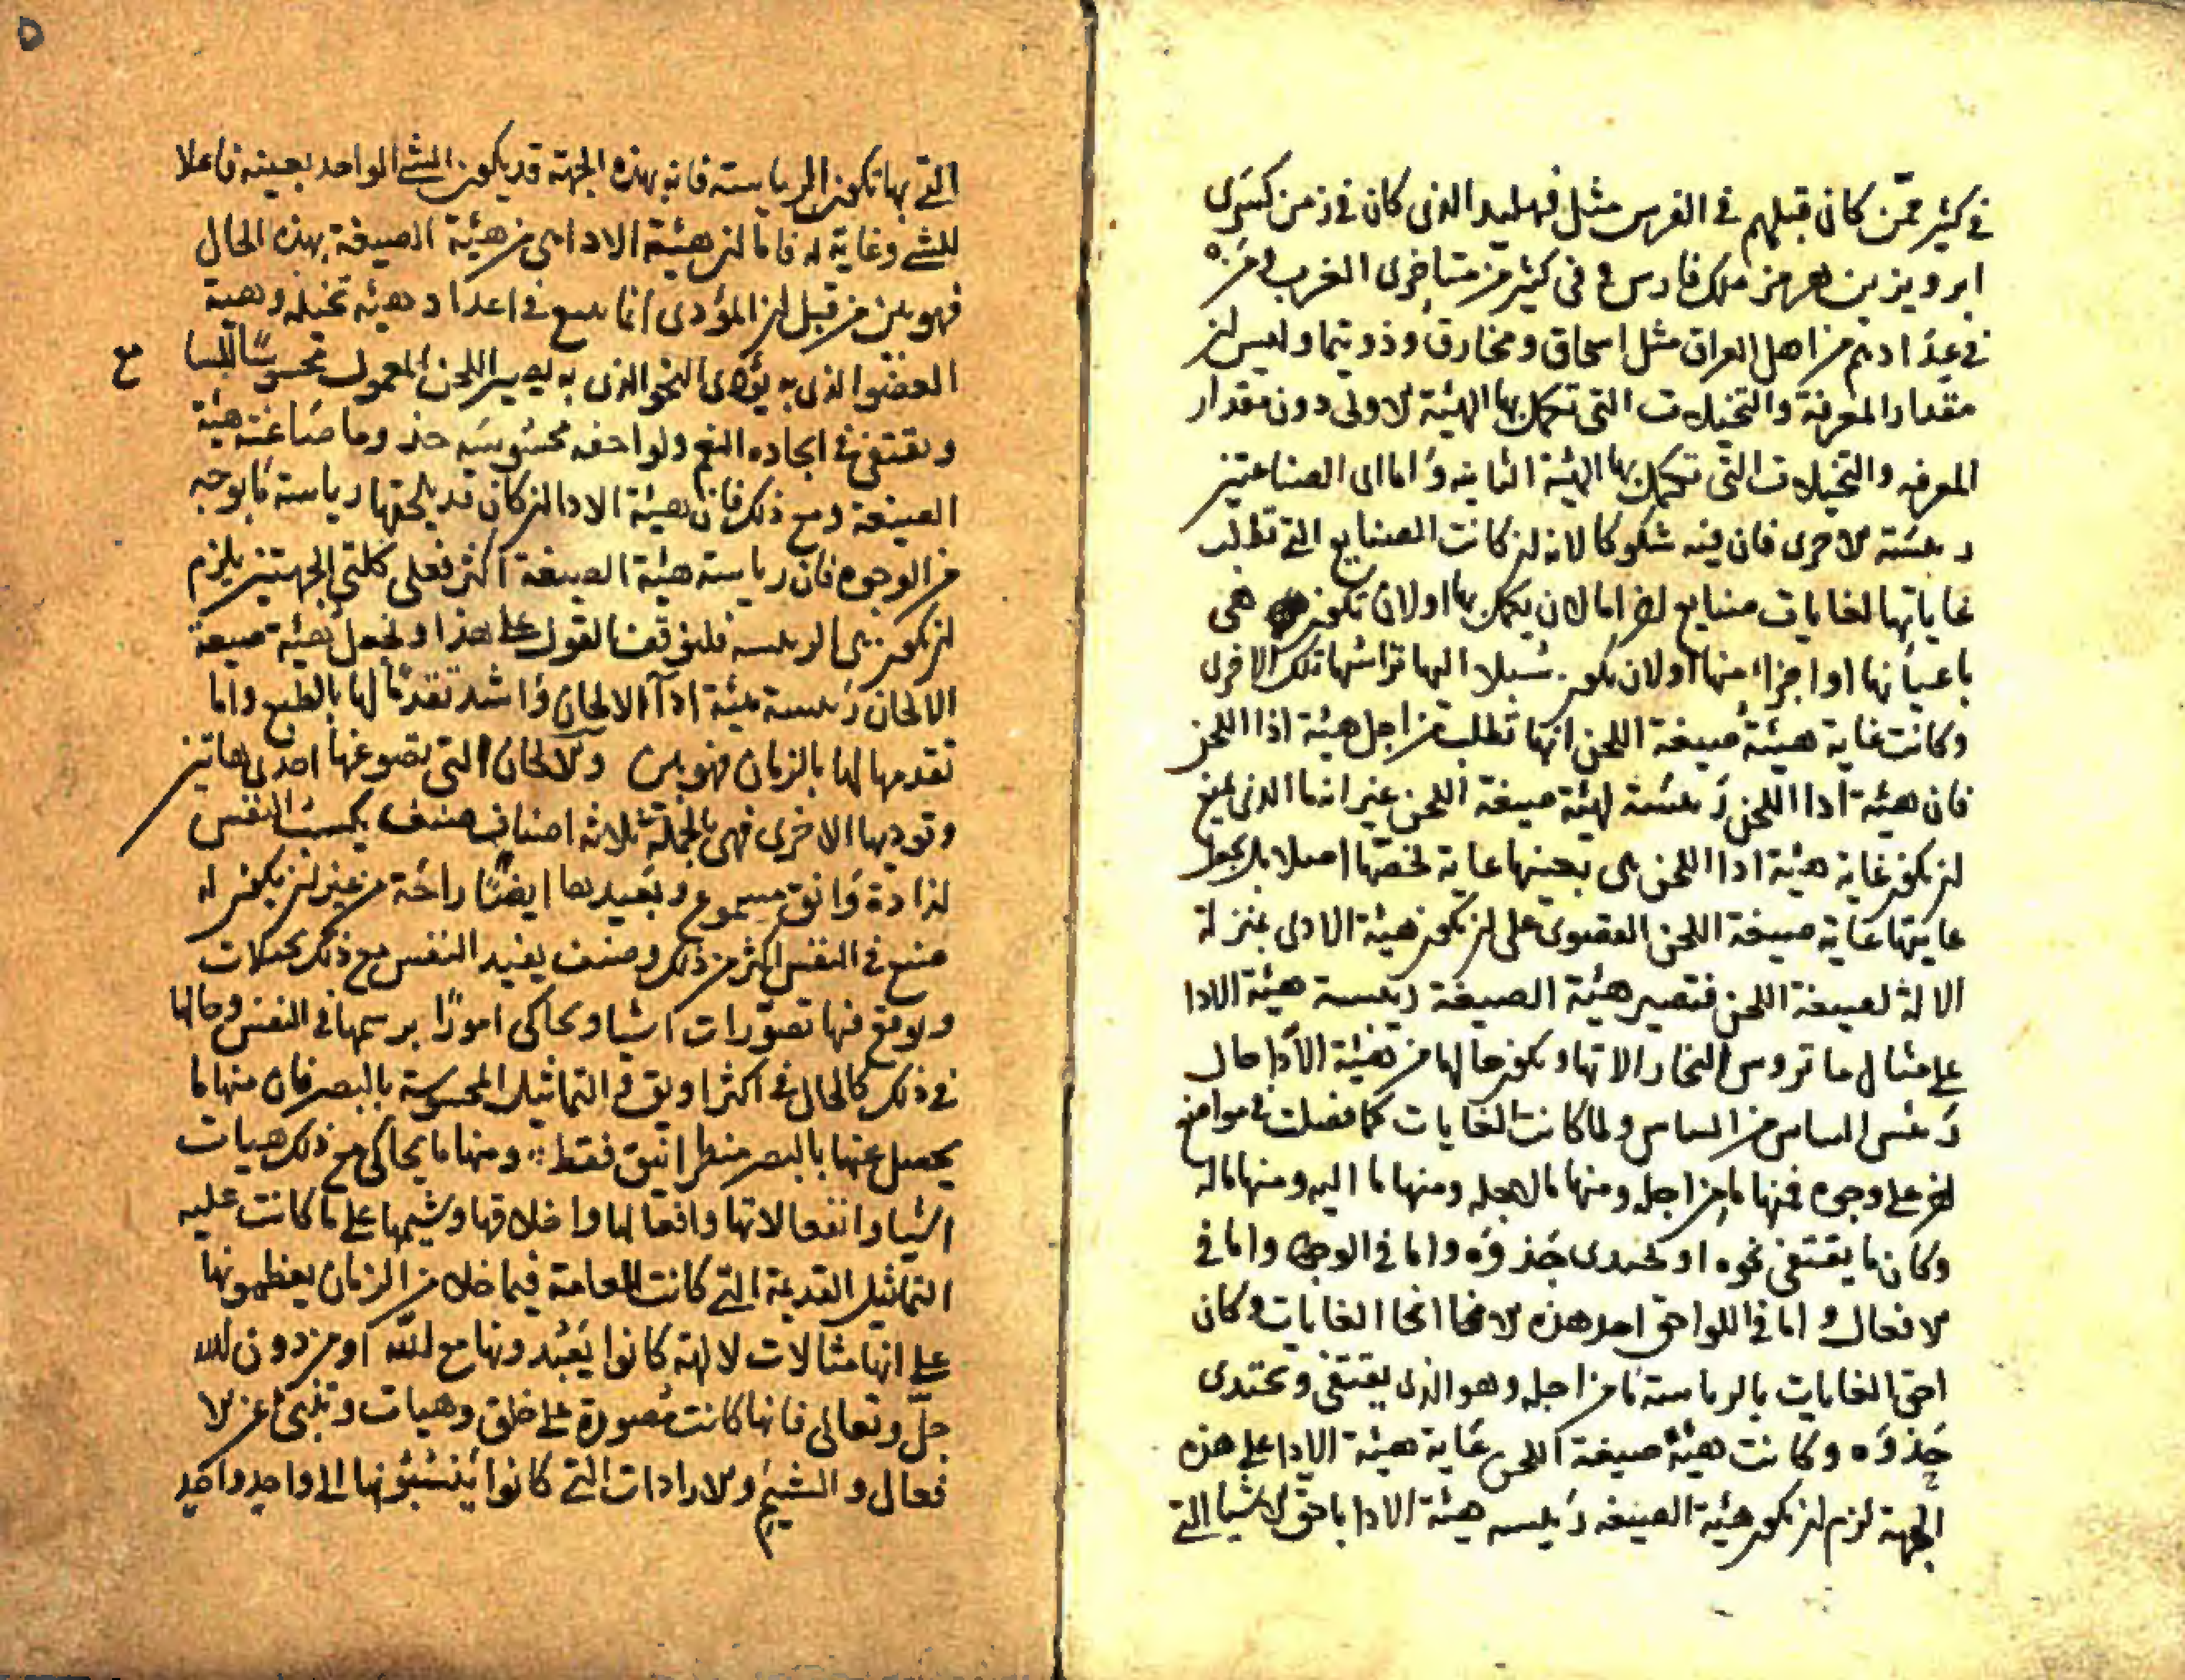 في كثير ممن كان قبلهم في الفرس مثل فهليد الذي كان في زمن كسرى
ابرويز بن هرمز ملك فارس و في كثير من متاخرى العرب و من
في عدادهم من اهل العراق مثل اسحاق ومخارق وذويهما وليس ان
مقدار المعرفة والتخيلات التي تكمل بها الهيئة الاولى دون مقدار
المعرفه والتخيلات التي تكمل بها الهيئة الثانيه واما اى الصناعتين
رئيسة الاخرى فان فيه شكوكا لانه ان كانت الصنايع التي تطلب
غاياتها لغايات صنايع اخر اما لان يكمل بها او لان تكون هى
باعيانها او اجزاء منها او لان تكون سبلا اليها تراسها تلك الاخرى
وكانت غاية هيئة صيغة اللحن انها تطلب من اجل هيئة ادا اللحن
فان هيئة ادا اللحن رئيسة لهيئة صيغة اللحن غير انه ما الذى يمنع
ان تكون غاية هيئة ادا اللحن هى بعينها غاية تخصها اصلا بل تجعل
غايتها غاية صيغة اللحن القصوى على ان تكون هيئة الادى بمنزلة
الالة لصيغة اللحن فتصير هيئة الصيغة رئيسة هيئة الادا
على مثال ما تروس النجار الاتها ويكون حالها من هيئة الأدا حال
رئيس الساس من الساس ولما كانت الغايات كما فصلت في مواضع
اخر على وجوه فمنها ما من اجله ومنها ما لاجله ومنها ما اليه ومنها ما له
وكان ما يقتفى نحوه او يحتدى حذوه واما في الوجود واما في
الافعال و اما في اللواحق احد هذه الانحا انحا الغايات وكان
احق الغايات بالرياسة ما من اجله وهو الذى يقتفى ويحتدى
حذوه وكانت هيئة صيغة اللحن غاية هيئة الادا على هذه
الجهة لزم ان تكون هيئة الصيغه رئيسه هيئة الادا باحق الاشيا التي
٥
التي بها تكون الرياسة فانه بهذه الجهة قد يكون الشئ الواحد بعينه فاعلا
للشئ وغاية له فاما ان هيئة الادا هى من هيئة الصيغة بهذه الحال
فهو بين من قبل ان المؤدى انما يسع في اعداد هيئه تخيله وهيئة
العضو الذى به يؤدى النحو الذى به يصير اللحن المعمول محسوسًا
مع
ويقتفى في ايجاده النغم ولواحقه محسوسه حذو ما صاغته هيئة
الصيغة ومع ذلك فان هيئة الادا ان كان قد يلحقها رياسة ما بوجه
من الوجوه فان رياسة هيئة الصيغة اكثر فعلى كلتى الجهتين يلزم
ان تكون هى الرئيسه فليوقف القول على هذا ولنجعل هيئة صيغة
الالحان رئيسة هيئة ادآ الالحان واشد تقدما لها بالطبع واما
تقدمها لها بالزمان فهو بين والالحان التي تصوغها احدى هاتين
وتوديها الاخرى فهى بالجملة ثلاثه اصناف صنف يكسب النفس
لذاذة وانق مسموع ويفيدها ايضًا راحة من غير ان يكون له
صنع في النفس اكثر من ذلك وصنف يفيد النفس مع ذلك تخيلات
ويوقع فيها تصوّرات اشيا ويحاكى امورًا يرسمها في النفس وحالها
في ذلك كالحال في اكثر اويق في التماثيل المحسوسة بالبصر فان منها ما
يحصل عنها بالبصر منظر انيق فقط ومنها ما يحاكى مع ذلك هيات
اشيا وانفعالاتها وافعالها واخلاقها وشيمها على ما كانت عليه
التماثيل القديمة التي كانت العامة فيما خلا من الزمان يعظمونها
على انها مثالات لالهة كانوا يعبدونها مع الله او من دون الله
جلّ وتعالى فانها كانت مصورة على خلق وهيات وتنبئ عن الا
فعال والشيم والارادات التي كانوا ينسبونها الى واحد واحد